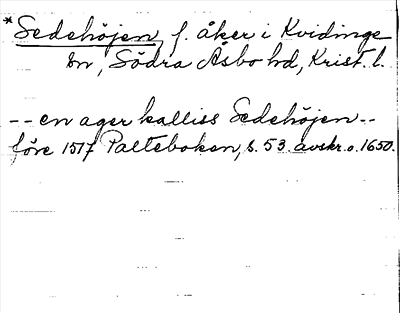 * Sedehöjen, f. åker i Kvidinge
sn, Södra Åsbo hd, Krist. l.
-- en ager kalliss Sedehöjen --
före 1517 Palteboken, s. 53. avskr. o. 1650.